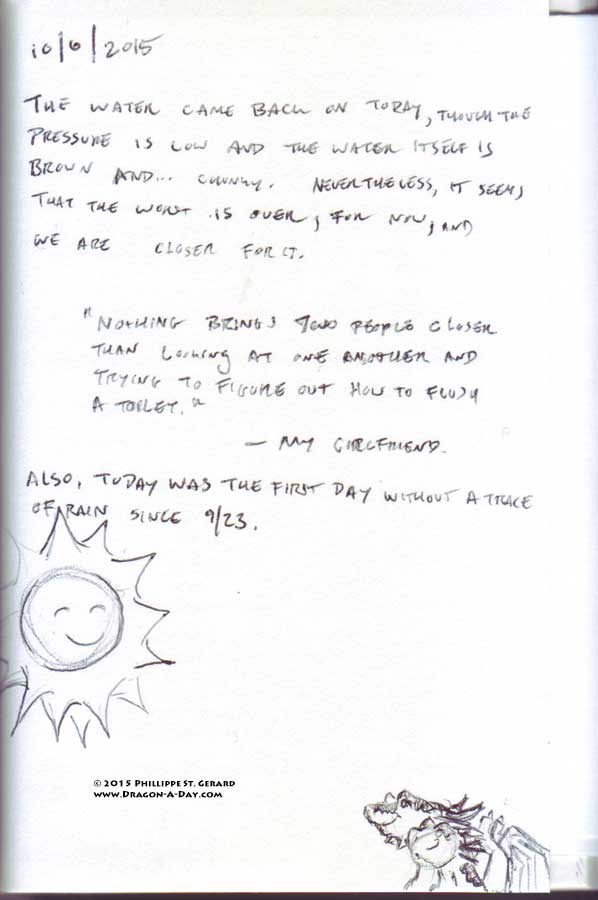 10/6/2015
THE WATER CAME BACK ON TODAY, THOUGH THE
PRESSURE IS LOW AND THE WATER ITSELF IS
BROWN AND... CHUNKY. NEVERTHELESS, IT SEEMS
THAT THE WORST IS OVER, FOR NOW, AND
WE ARE CLOSER FOR IT.
"NOTHING BRINGS TWO PEOPLE CLOSER
THAN LOOKING AT ONE ANOTHER AND
TRYING TO FIGURE OUT HOW TO FLUSH
A TOILET."
— MY GIRLFRIEND.
ALSO, TODAY WAS THE FIRST DAY WITHOUT A TRACE
OF RAIN SINCE 9/23.
© 2015 PHILLIPPE ST. GERARD
WWW.DRAGON-A-DAY.COM